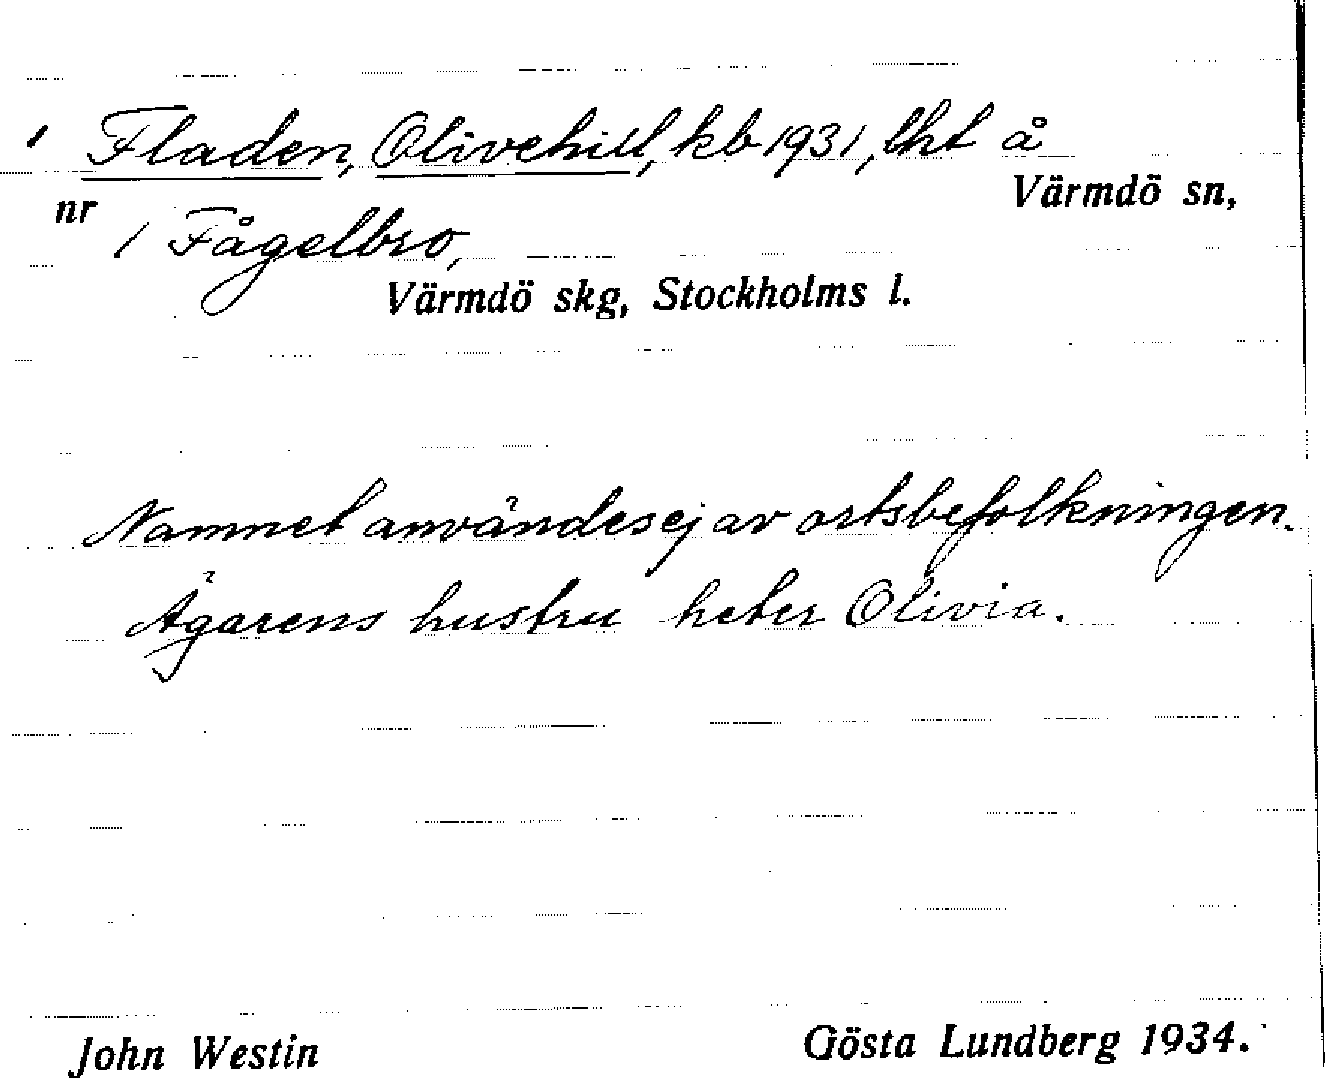 Fladen, Olivehill, kb 1931, lht å
Värmdö sn,
nr 1 Fågelbro,
Värmdö skg, Stockholms l.
Namnet användes ej av ortsbefolkningen.
Ägarens hustru heter Olivia.
John Westin Gösta Lundberg 1934.